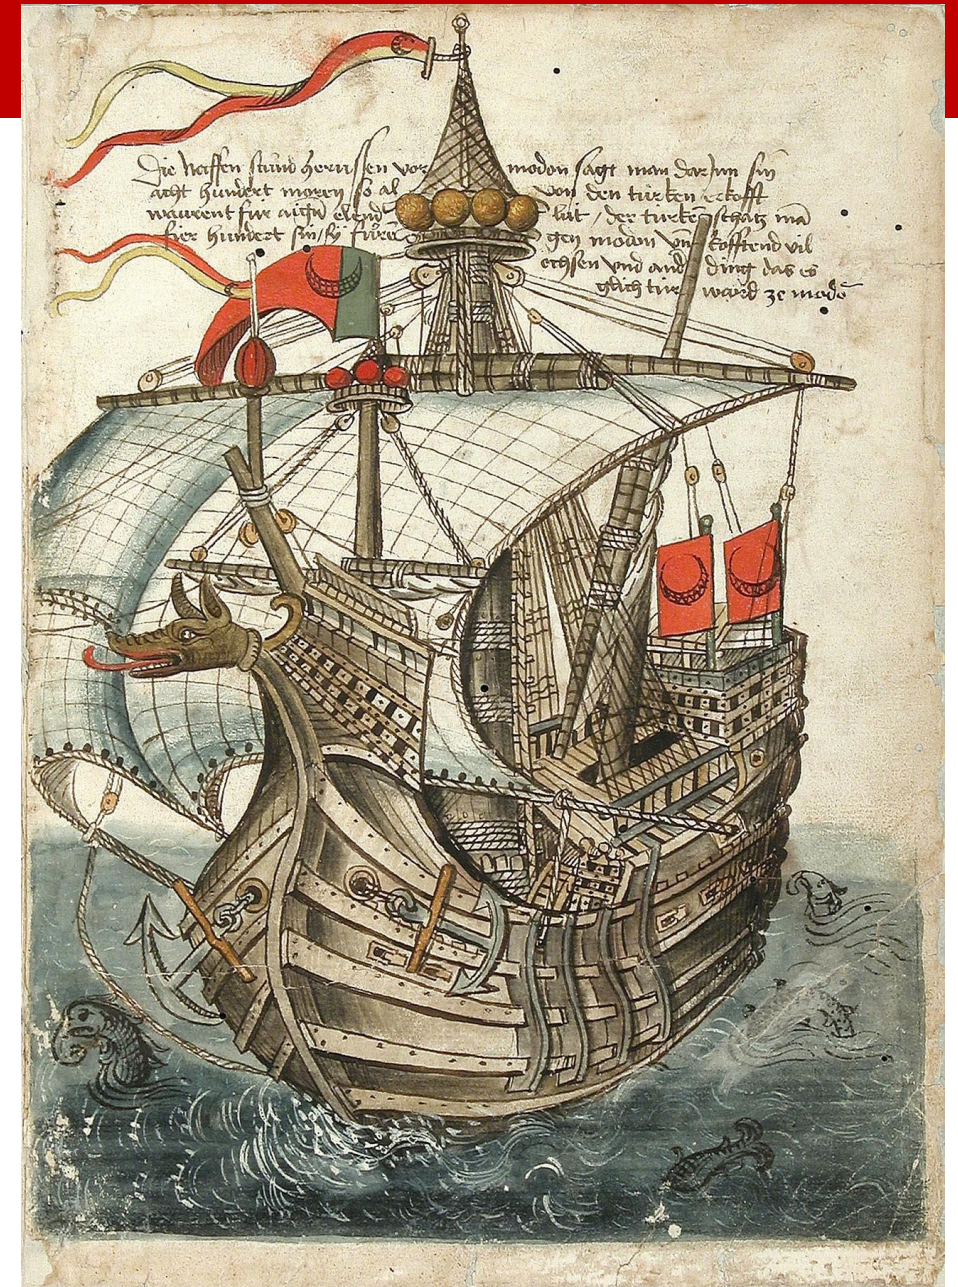 Die naffen stund herussen vor modon sagt man dar Inn sin
acht hundert moren so al von den turken erkofft
warent fur aigen lut / der turken schatz
fier hundert gen modon vnd kofftend vil
ochsen vnd ander ding das es
glich tur ward ze modon